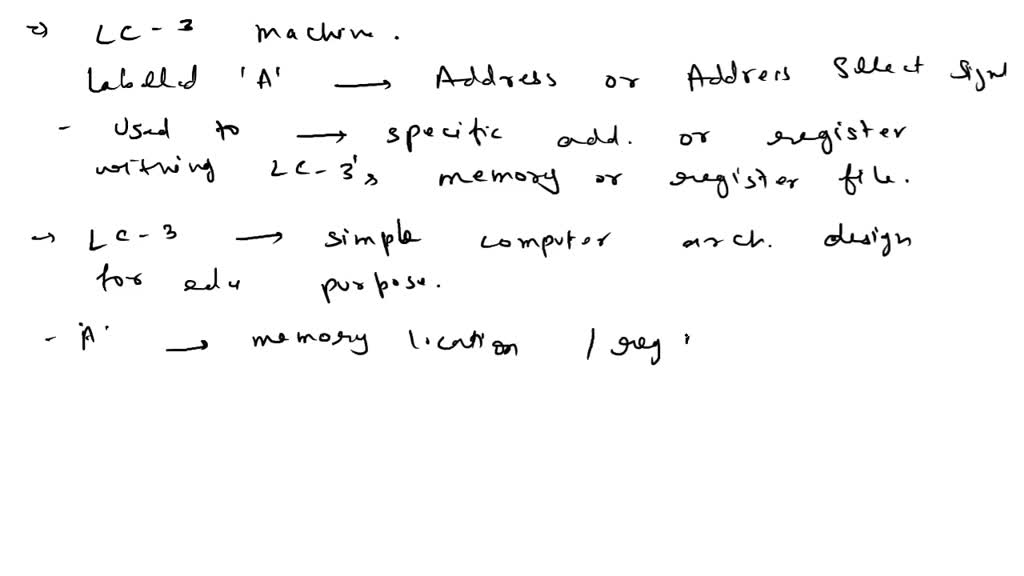 =) LC-3 machine.
Labelled 'A' → Address or Address Select Signl
- Used to → specific add. or register
withing LC-3's memory or register file.
→ LC-3 → simple computer arch. design
for edu purpose.
- 'A' → memory location / reg